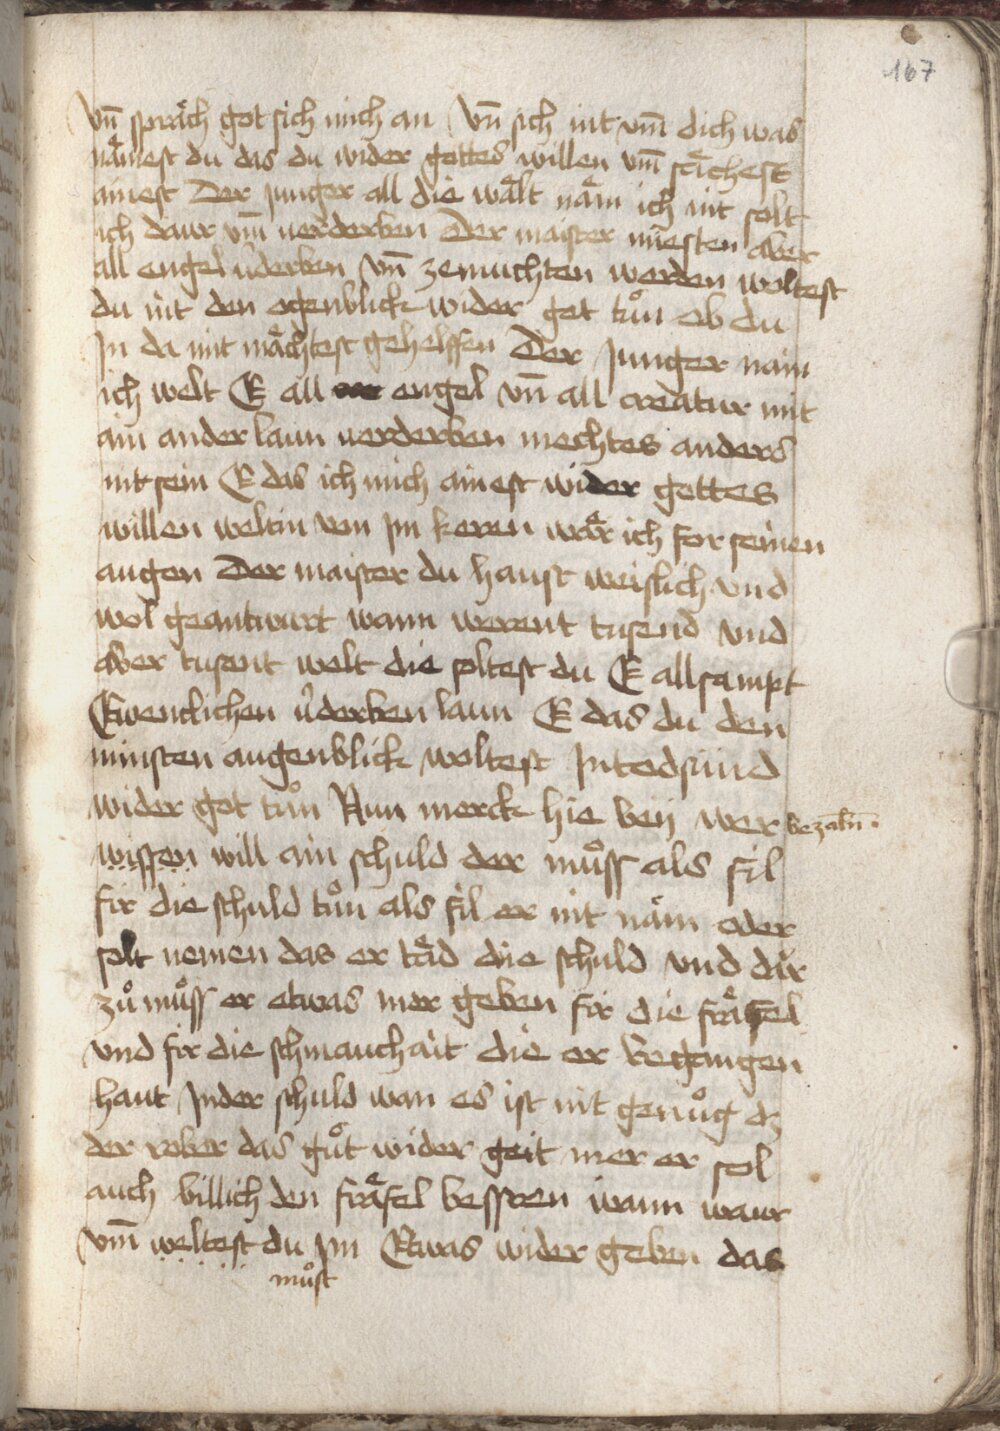 167
vn̄ spraͤch got sich mich an vn̄ sich nit vm̄ dich was
naͤmest du das du wider gottes willen vm̄ saͤchest
ainest Der junger all die waͤlt naͤm ich nit solt
ich daur vm̄ uerderben Der maister müesten aber
all engel v̂derben vn̄ zemuchten werden woltest
du nit den ogenblick wider got tuͦn ob du
In da mit maͤchtest gehelffen Der Junger nain
ich welt E all engel vn̄ all creatur mit
ain ander laun uerderben mechtes anders
nit sein E das ich mich ainest wider gottes
willen weltin von Im keren waͤr ich for seinen
augen Der maister du haust weislich vnd
wol geantwurt wann werent tusend vnd
aber tusent welt die soltest du E allsampt
Ewenclichen v̂derben laun E das du den
minsten augenblick woltest In todsünd
wider got tuͦn Nun merck hie beÿ wer bezaln̄
wissen will ain schuld der muͦss als fil
fir die schuld tuͦn als fil er nit naͤm oder
solt nemen das er taͤd die schuld vnd dar
zuͦ muͦss er etwas mer geben fir die fraͤfel
vnd fir die schmauchait die er begangen
haut In der schuld wan es ist nit genuͦg dz
der rober das guͦt wider geit mer er sol
auch billich den fraͤfel bessren wann waur
vm̄ weltest du Im Etwas wider geben das
muͦst